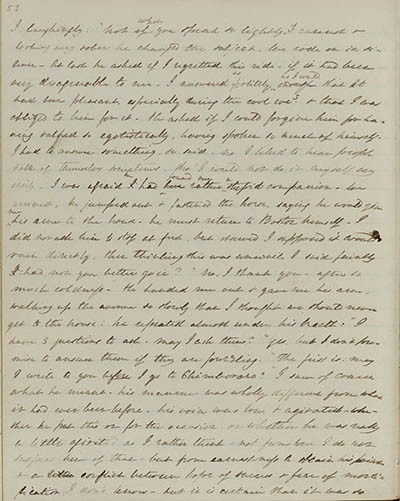 52
I laughingly: "not if you speak so lightly, I cannot &
while
looking very sober he changed the subject. We rode on in si-
lence - at last he asked if I regretted this ride - if it had been
very disagreeable to me - I answered politely that it
had been pleasant, especially during the cool eve? & that I was
obliged to him for it. He asked if I would forgive him for ha-
ving talked so egotistically, having spoken so much of himself.
I had to answer something, so said - no I liked to hear people
talk of themselves sometimes, tho' I would not do it myself
I was afraid I had been rather a stupid companion - we
arrived, he jumped out & fastened the horse, saying he would give
me his arm to the house - he must return to Boston himself - I
did not ask him to stop at first, but observed I supposed it would
rain directly, then thinking this was uncivil I said faintly
"had not you better go in?" "No, I thank you - after so
much coldness - He handed me out & gave me his arm -
walking up the avenue so slowly that I thought we should never
get to the house: he repeated almost under his breath: "I
have 3 questions to ask - may I ask them?" "Yes, but I don't pro-
mise to answer them if they are puzzling." "The first is: may
I write to you before I go to Chimborazo?" I saw of course
what he meant - his manner was wholly different from what
it had ever been before - his voice was low & agitated - whe-
ther he put this on for the occasion or whether he was really
a little agitated as I rather think - not from love I do not
suspect him of that - but from earnestness to obtain his
& a little conflict between hope of success & fear of morti-
fication I don't know - but it is certain that it was so